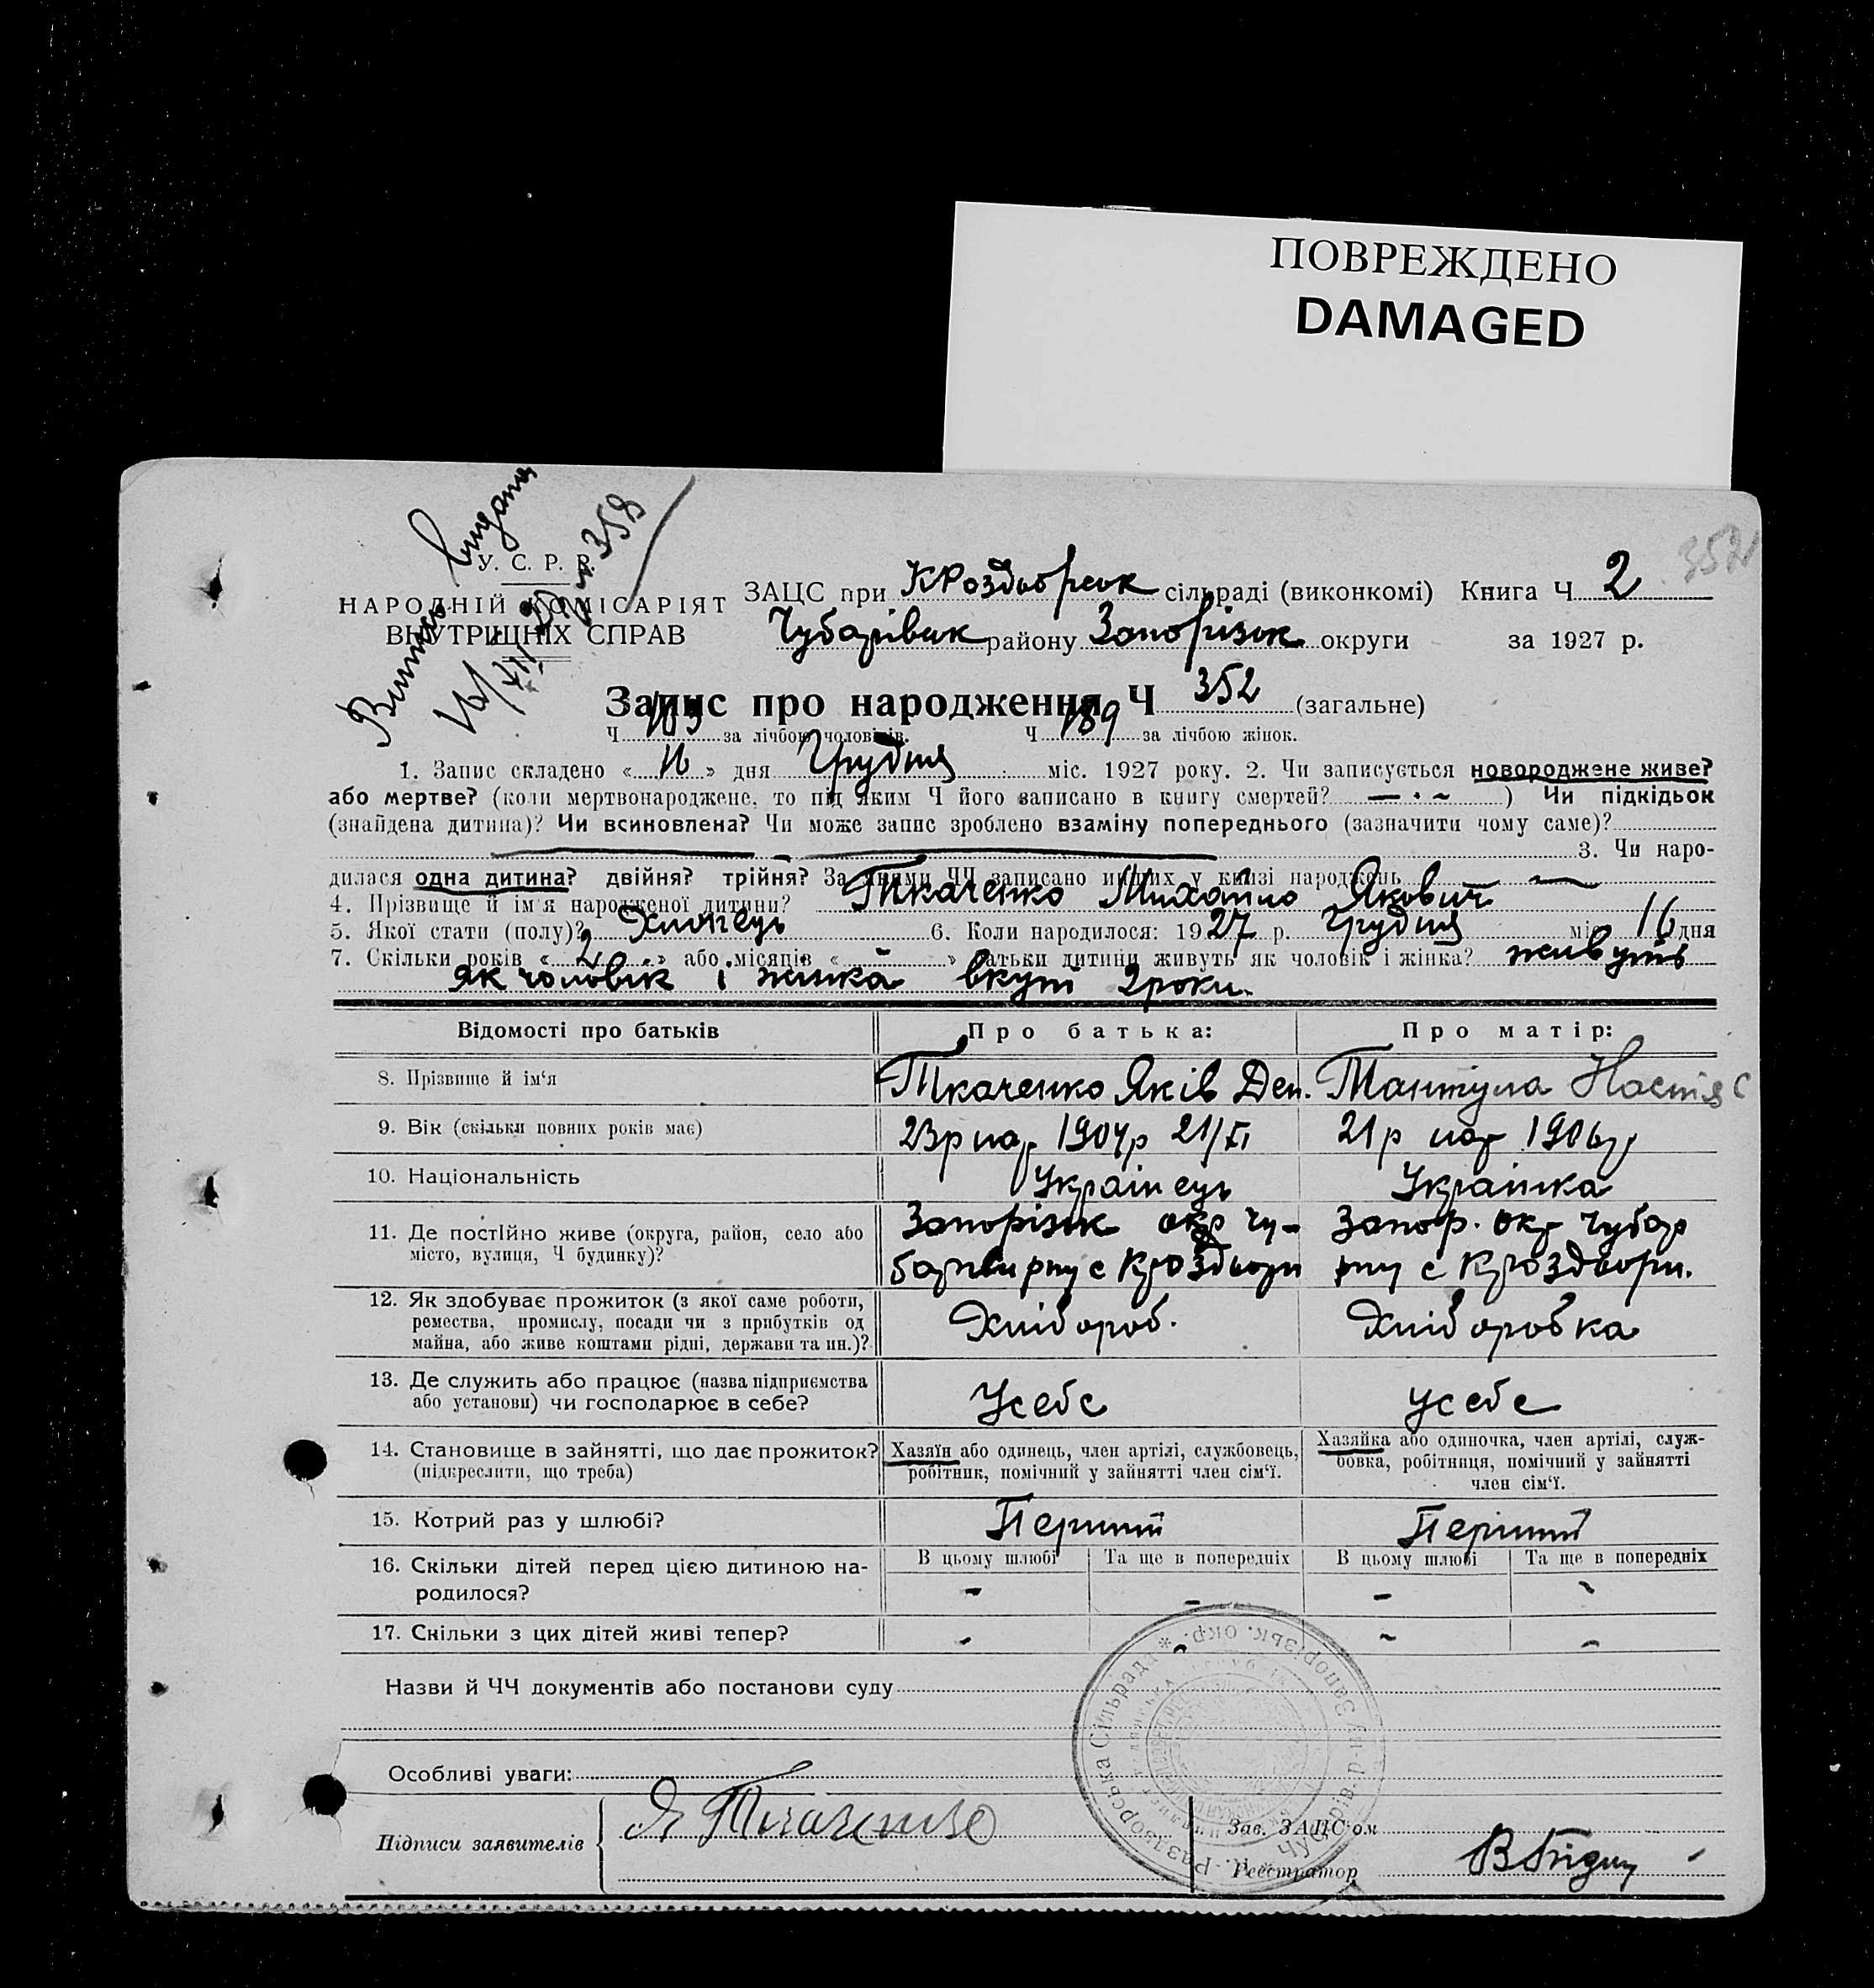 ПОВРЕЖДЕНО
DAMAGED
352
Витяг видано
№ 358
У. С. Р. Р.
НАРОДНІЙ КОМІСАРІЯТ
ВНУТРІШНІХ СПРАВ
ЗАЦС при КРоздорськ сільраді (виконкомі) Книга Ч 2
Чубарівськ району Запорізськ округи за 1927 р.
Запис про народження Ч 352 (загальне)
Ч 163 за лічбою чоловіків. Ч 189 за лічбою жінок.
1. Запис складено «16» дня Грудня міс. 1927 року. 2. Чи записується новороджене живе?
або мертве? (коли мертвонароджене, то під яким Ч його записано в книгу смертей? — · ~ ) Чи підкідьок
(знайдена дитина)? Чи всиновлена? Чи може запис зроблено взаміну попереднього (зазначити чому саме)?
3. Чи наро-
дилася одна дитина? двійня? трійня? За якими ЧЧ записано инших у книзі народжень —
4. Прізвище й ім'я народженої дитини? Ткаченко Михайло Якович
5. Якої стати (полу)? Хлопець 6. Коли народилося: 1927 р. Грудня міс. 16 дня
7. Скільки років «2» або місяців «-» батьки дитини живуть як чоловік і жінка? живуть
як чоловік і жинка вкупі 2 роки.
Відомості про батьків Про батька: Про матір:
8. Прізвище й ім‘я Ткаченко Яків Ден. Тантула Настя С
9. Вік (скільки повних років має) 23р нар 1904р 21/XI 21р нар 1906р
10. Національність Українець Українка
11. Де постійно живе (округа, район, село або місто, вулиця, Ч будинку)? Запорізьк окр Чу- Запор. окр Чубар
рну с КРоздори рну с КРоздори.
12. Як здобуває прожиток (з якої саме роботи,
ремества, промислу, посади чи з прибутків од
майна, або живе коштами рідні, держави та ин.)? Хлібороб. Хліборобка
13. Де служить або працює (назва підприємства
або установи) чи господарює в себе? Усебе усебе
14. Становище в зайнятті, що дає прожиток?
(підкреслити, що треба)
Хазяїн або одинець, член артілі, службовець,
робітник, помічний у зайнятті член сім‘ї.
Хазяйка або одиночка, член артілі, служ-
бовка, робітниця, помічний у зайнятті
член сім‘ї.
15. Котрий раз у шлюбі? Перший Перший
16. Скільки дітей перед цією дитиною на-
родилося?
В цьому шлюбі Та ще в попередніх В цьому шлюбі Та ще в попередніх
- - - -
17. Скільки з цих дітей живі тепер? - - ~ -
Назви й ЧЧ документів або постанови суду
Особливі уваги:
Підписи заявителів Я Ткаченко
Зав. ЗАЦС‘ом
Реєстратор
К.-Раздорська Сільрада * Чубарів. р. Запорізьк. окр.